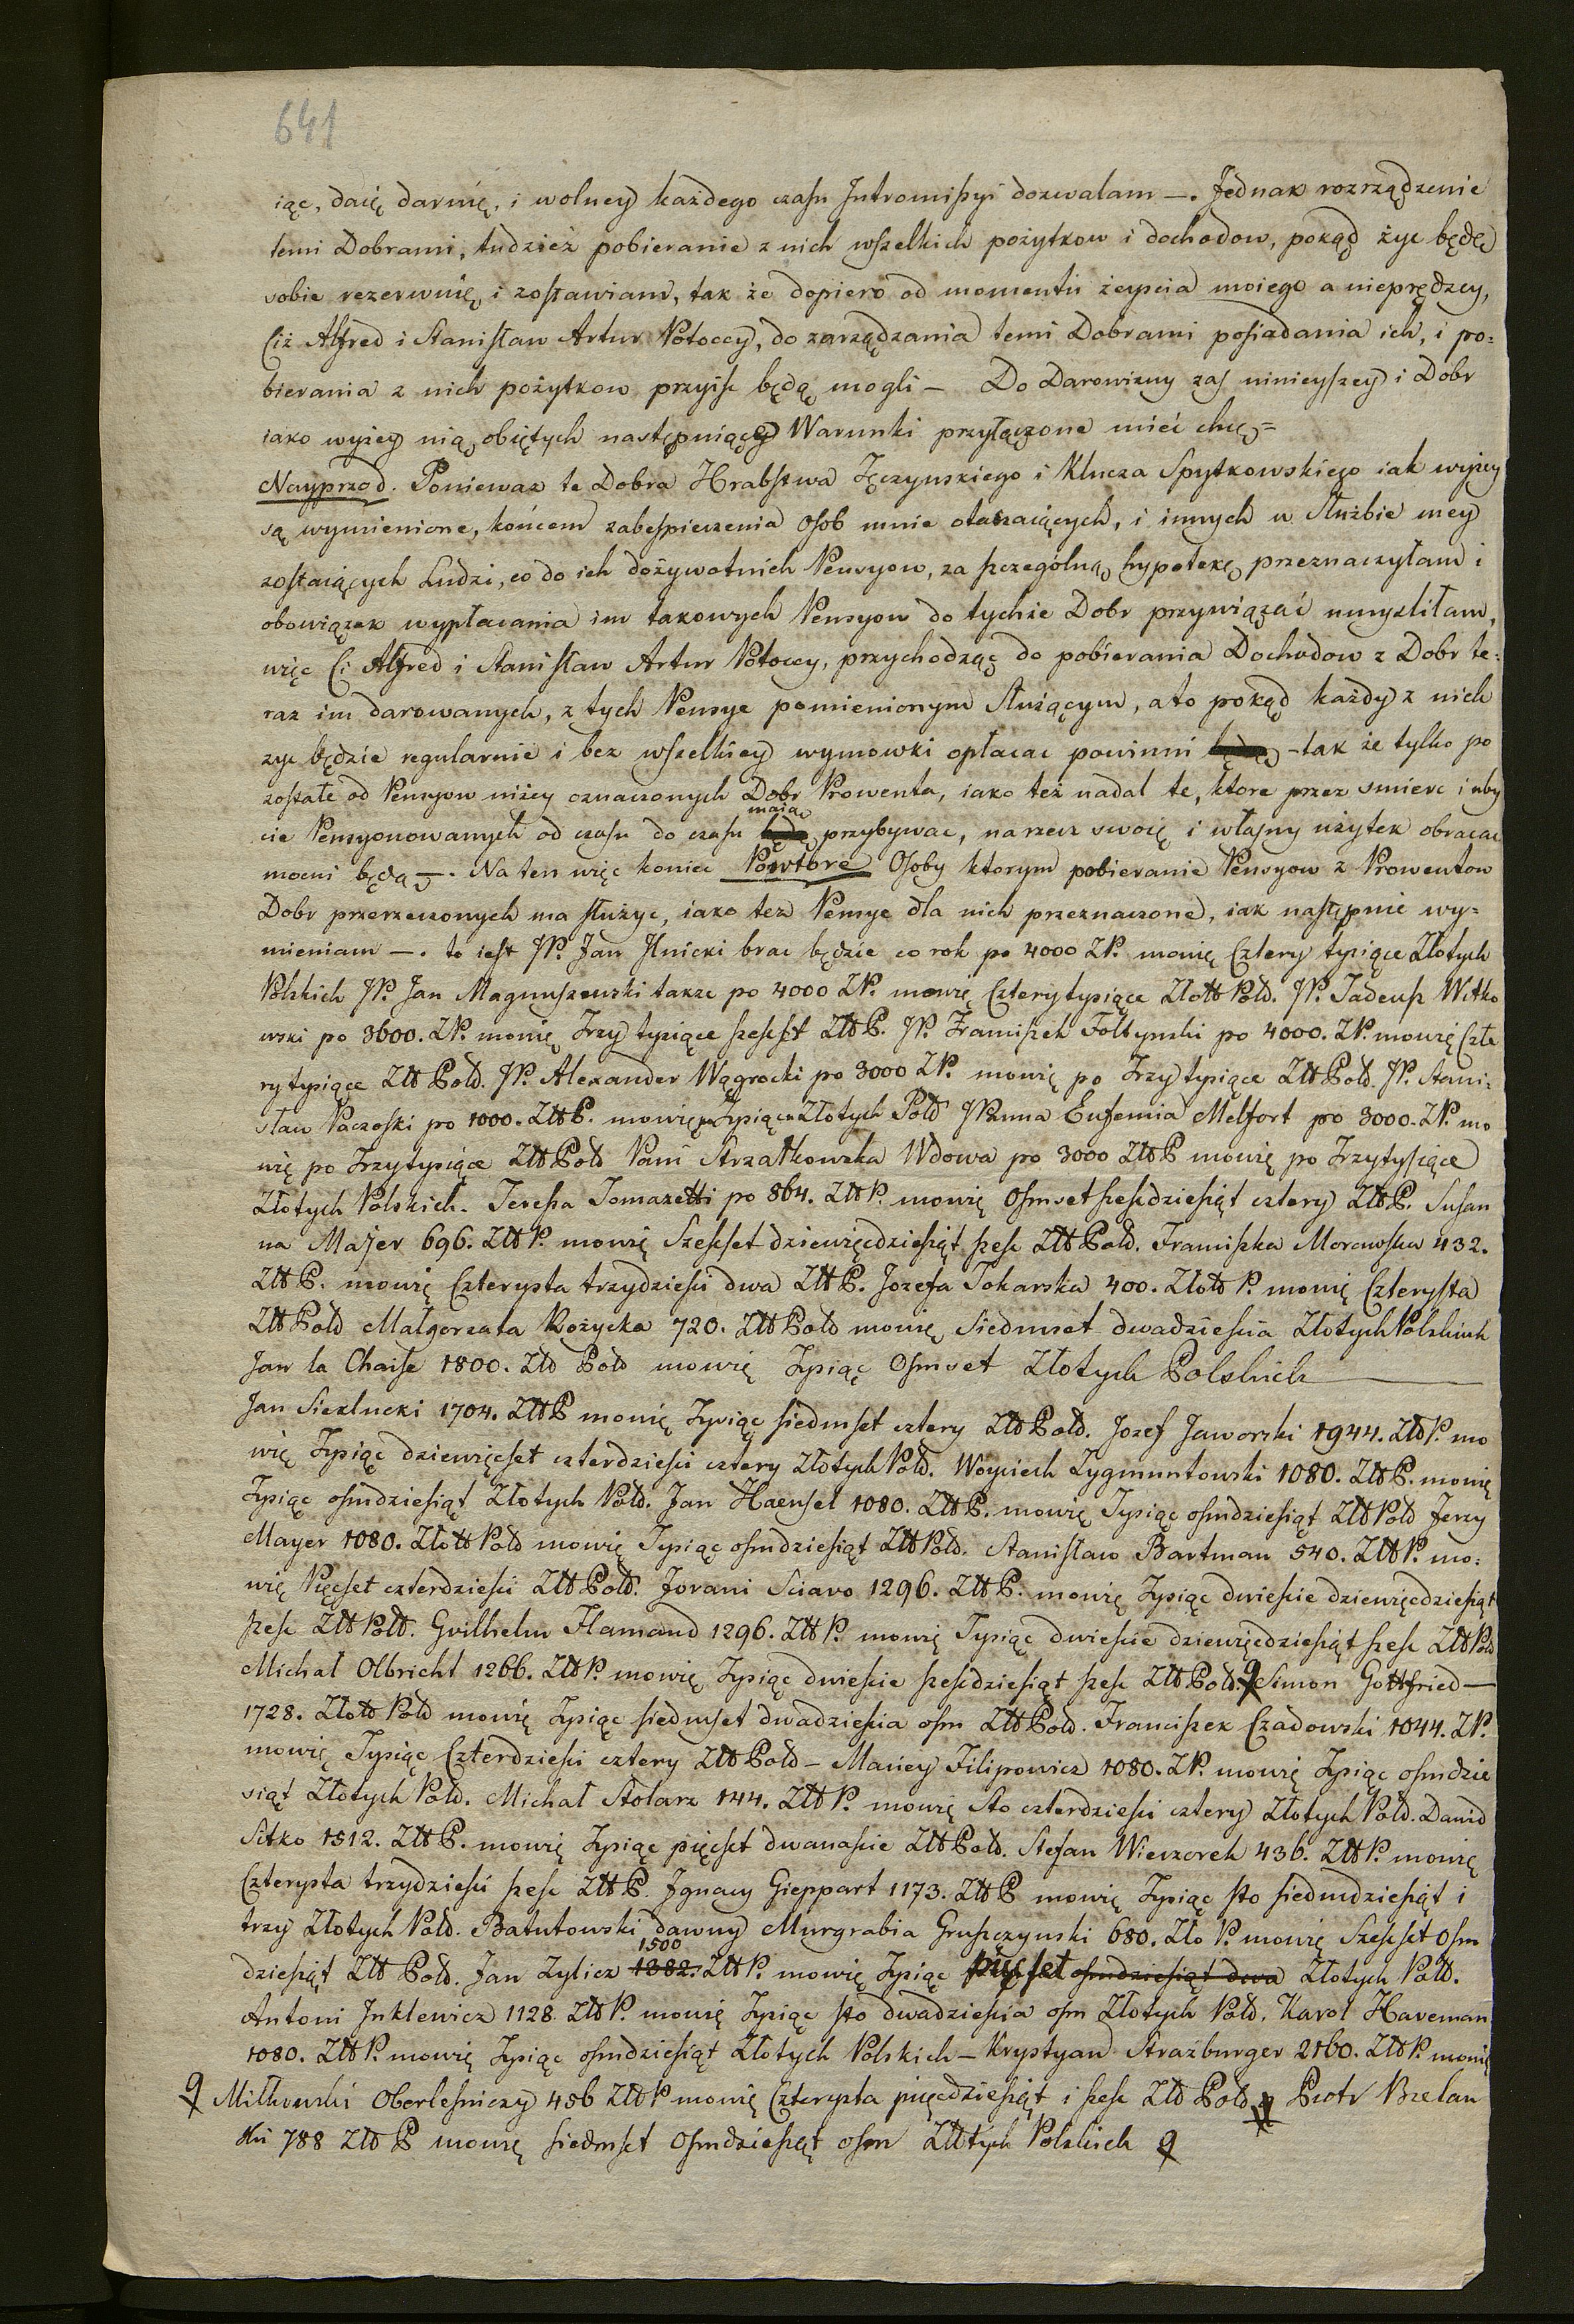 641
iąc, daię daruię, i wolney każdego czasu Intromissyi dozwalam —. Jednak rozrządzenie
temi Dobrami, tudzież pobieranie z nich wszelkich pożytkow i dochodow, pokąd żyć będę
sobie rezerwuię, i zostawiam, tak że dopiero od momentu zeyscia moiego a nieprędzey,
Ciż Alfred i Stanisław Artur Potoccy, do zarządzania temi Dobrami posiadania ich, i po=
bierania z nich pożytkow przyiść będą mogli — Do Darowizny zaś ninieyszey i Dobr
iako wyżey nią obiętych następuiące Warunki przyłączone mieć chcę =
Nayprzod. Ponieważ te Dobra Hrabstwa Tęczynskiego i Klucza Spytkowskiego iak wyżey
są wymienione, końcem zabespieczenia Osob mnie otaczaiących, i innych w Służbie mey
zostaiących Ludzi, co do ich dożywotnich Pensyow, za szczegolną hypotekę przeznaczyłam i
obowiązek wypłacania im takowych Pensyow do tychże Dobr przywiązać umyśliłam,
więc Ci Alfred i Stanisław Artur Potoccy, przychodząc do pobierania Dochodow z Dobr te=
raz im darowanych, z tych Pensye pomienionym Służącym, a to pokąd każdy z nich
żyć będzie regularnie i bez wszelkiey wymowki opłacac powinni będą — tak że tylko po
zostałe od Pensyow niżey oznaczonych Dobr Prowenta, iako też nadal te, ktore przez smierc i uby
maiąc
cie Pensyonowanych od czasu do czasu będą przybywac, na rzecz swoię i własny użytek obracac
mocni będą —. Na ten więc koniec Powtore Osoby ktorym pobieranie Pensyow z Prowentow
Dobr przerzeczonych ma służyć, iako też Pensye dla nich przeznaczone, iak następnie wy=
mieniam —. to iest JP. Jan Ilnicki brac będzie co rok po 4000 ZP. mowię Cztery tysiące Złotych
Polskich JP. Jan Magnuszewski takze po 4000 ZP. mowię Cztery tysiące Złott Pold. JP. Tadeusz Witko
wski po 3600. ZP. mowię Trzy tysiące szesset Złt P. JP. Franciszek Foltynski po 4000. ZP. mowię Czte
ry tysiące Złt Pold. JP. Alexander Wągrocki po 3000 ZP. mowię po Trzy tysiące Złt Pold. JP. Stani=
sław Paczoski po 1000. Złt P. mowię po Tysiącu Złotych Pold JPanna Eufemia Melfort po 3000. ZP. mo
wię po Trzy tysiące Złt Pold Pani Strzałkowska Wdowa po 3000 Złt P mowię po Trzy tysiące
Złotych Polskich. Teressa Tomazetti po 864. Złt P. mowię Osmset szescdziesiąt cztery Złt P. Susan
na Majer 696. Złt P. mowię Szescset dziewięcdziesiąt szesc Złt Pold. Franciszka Morawska 432.
Złt P. mowię Czterysta trzydziesci dwa Złt P. Jozefa Tokarska 400. Złott P. mowię Czterysta
Złt Pold Małgorzata Rożycka 720. Złt Pold mowię Siedmset dwadziescia Złotych Polskich
Jan la Chaise 1800. Złd Pold mowię Tysiąc Osmset Złotych Polskich
Jan Sieklucki 1704. Złt P mowię Tysiąc siedmset cztery Złt Pold. Jozef Jaworski 1944. Złt P. mo
wię Tysiąc dziewięcset czterdziesci cztery Złotych Pold. Woyciech Zygmuntowski 1080. Złt P. mowię
Tysiąc osmdziesiąt Złotych Pold. Jan Haensel 1080. Złt P. mowię Tysiąc osmdziesiąt Złt Pold Jerzy
Mayer 1080. Złott Pold mowię Tysiąc osmdziesiąt Złt Pold. Stanisław Bartman 540. Złt P. mo=
wię Pięcset czterdziesci Złt Pold. Jovani Sciavo 1296. Złt P. mowię Tysiąc dwiescie dziewięcdziesiąt
szesc Złt Pold. Gvilhelm Flamand 1296. Złt P. mowię Tysiąc dwiescie dziewięcdziesiąt szesc Złt Pold
Michał Olbricht 1266. Złt P. mowię Tysiąc dwiescie szescdziesiąt szesc Złt Pold. Simon Gottfried —
1728. Złott Pold mowię Tysiąc siedmset dwadziescia osm Złt Pold. Franciszek Czadowski 1044. ZP.
mowię Tysiąc Czterdziesci cztery Złt Pold — Maciey Filipowicz 1080. ZP. mowię Tysiąc osmdzie
siąt Złotych Pold. Michał Stolarz 144. Złt P. mowię Sto czterdziesci cztery Złotych Pold. Dawid
Sitko 1512. Złt P. mowię Tysiąc pięcset dwanascie Złt Pold. Stefan Wieczorek 436. Złt P. mowię
Czterysta trzydziesci szesc Złt P. Ignacy Gieppart 1173. Złt P mowię Tysiąc sto siedmdziesiąt i
trzy Złotych Pold. Batutowski dawny Murgrabia Gruszczynski 680. Zło P. mowię Szescset Osm
1500
dziesiąt Złt Pold. Jan Zylicz 1382. Złt P. mowię Tysiąc pięcset osmdziesiąt dwa Złotych Pold.
Antoni Inklewicz 1128. Złt P. mowię Tysiąc sto dwadziescia osm Złotych Pold. Karol Haveman
1080. Złt P. mowię Tysiąc osmdziesiąt Złotych Polskich — Krystyan Strażburger 2160. Złt P. mowię
Miłkowski Oberlesniczy 456 Złt P mowię Czterysta pięcdziesiąt i szesc Złt Pold Piotr Brzelan
ski 788 Złd P mowię siedmset Osmdziesiąt osm Złtych Polskich